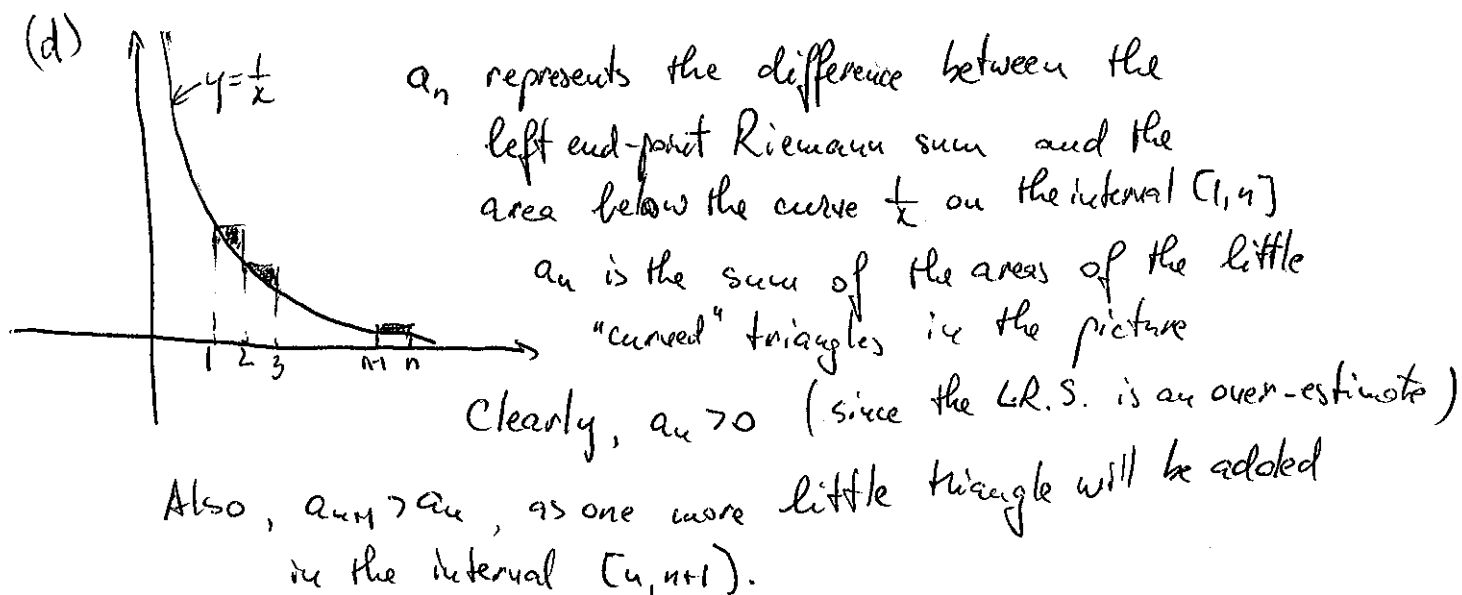 (d)
y = 1/x
a_n represents the difference between the
left end-point Riemann sum and the
area below the curve 1/x on the interval [1, n]
a_n is the sum of the areas of the little
"curved" triangles in the picture
1 2 3 n-1 n
Clearly, a_n > 0 (since the L.R.S. is an over-estimate)
Also, a_{n+1} > a_n, as one more little triangle will be added
in the interval [n, n+1).